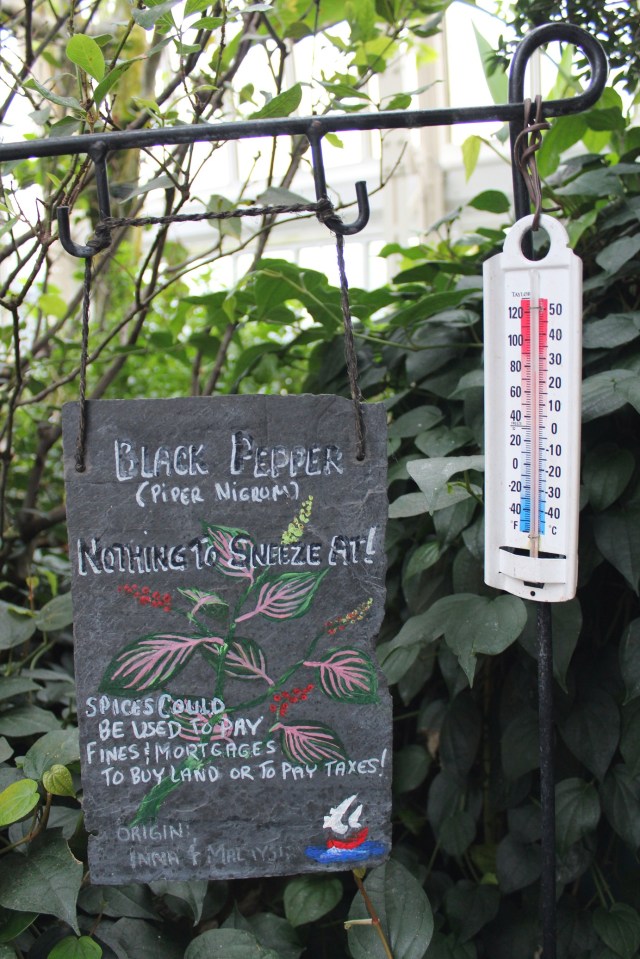 BLACK PEPPER
(PIPER NIGRUM)
NOTHING TO SNEEZE AT!
SPICES COULD
BE USED TO PAY
FINES & MORTGAGES
TO BUY LAND OR TO PAY TAXES!
ORIGIN:
& MALAYSI
TAYLOR
120 50
100 40
80 30
60 20
40 10
20 0
0 -10
-20 -20
-40 -30
-40
°F °C